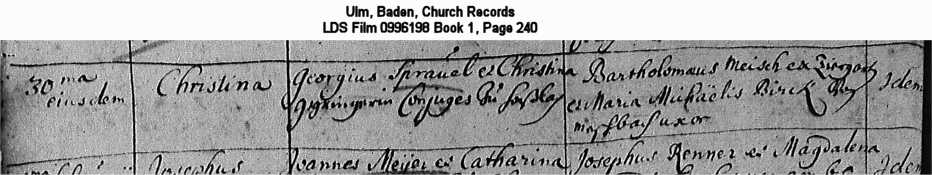 Ulm, Baden, Church Records
LDS Film 0996198 Book 1, Page 240
30ma Christina Georgius Sprauel et Christina Bartholomæus Meisch ex
eiusdem Conjuges Zu et Maria Michaëlis Birck Idem
uxor
Josephus Joannes Meÿer et Catharina Josephus Renner et Magdalena Idem